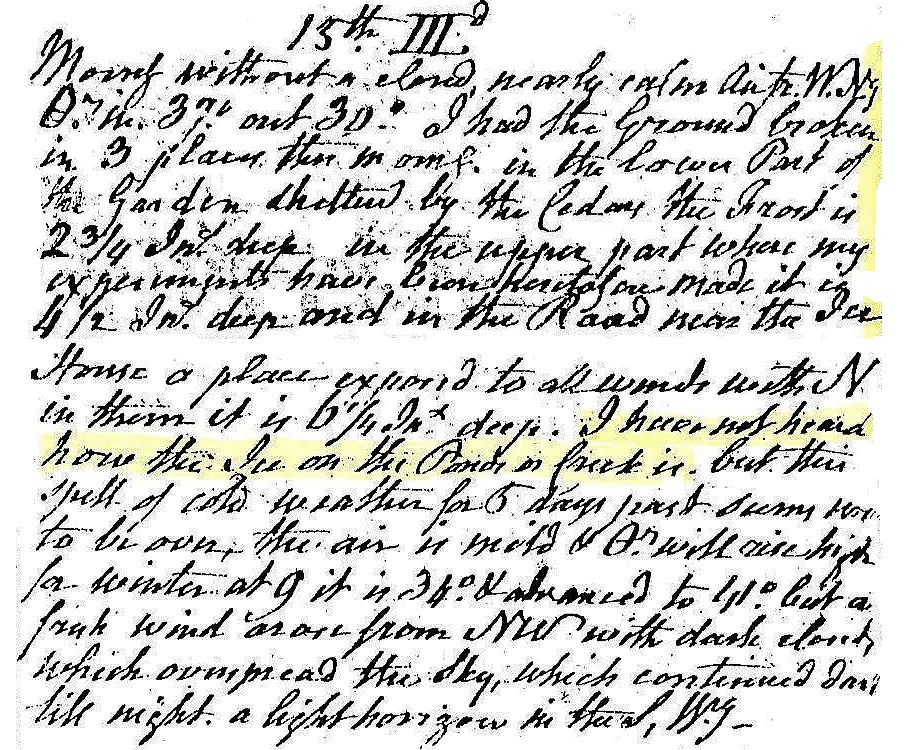 13th. III.d
Morng without a cloud, nearly calm Air fr. W.N.y
in. 37.° out 30.° I had the Ground broken
in 3 places this morng. in the lower Part of
the Garden sheltred by the Cedars the Frost is
2 3/4 Ins. deep in the upper part where my
experiments have been heretofore made it is
4 1/2 Ins. deep and in the Road near the Ice
House a place exposed to all winds with N
in them it is 6 1/4 Ins. deep. I have not heard
how the Ice on the Ponds or Creek is. but this
spell of cold weather for 5 days past seems now
to be over, the air is mild & will rise high
for winter at 9 it is 34.° & advanced to 41.° but a
fresh wind arose from NW with dark clouds,
which overspread the Sky, which continued dark
till night. a light horizon in the S, W.y —